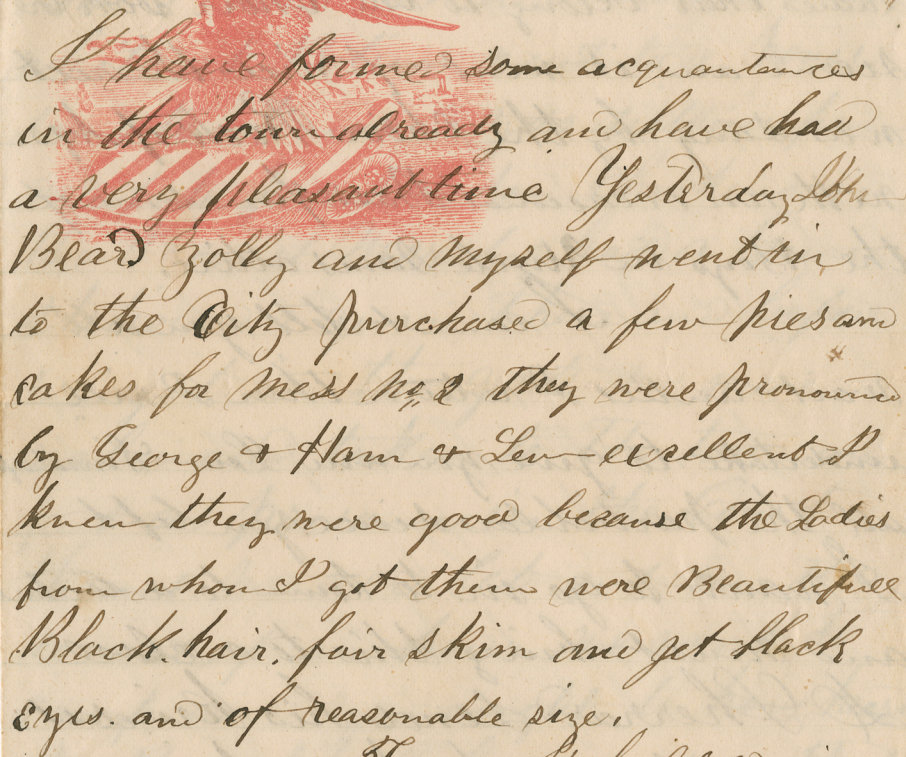 I have formed some acquantances
in the town already and have had
a very pleasant time Yesterday John
Beard Zolly and myself went in
to the City purchased a few pies and
cakes for mess No. 2 they were pronounced
by George & Ham & Lew excellent I
knew they were good because the Ladies
from whom I got them were Beautifull
Black. hair. fair skim and jet black
eyes. and of reasonable size.